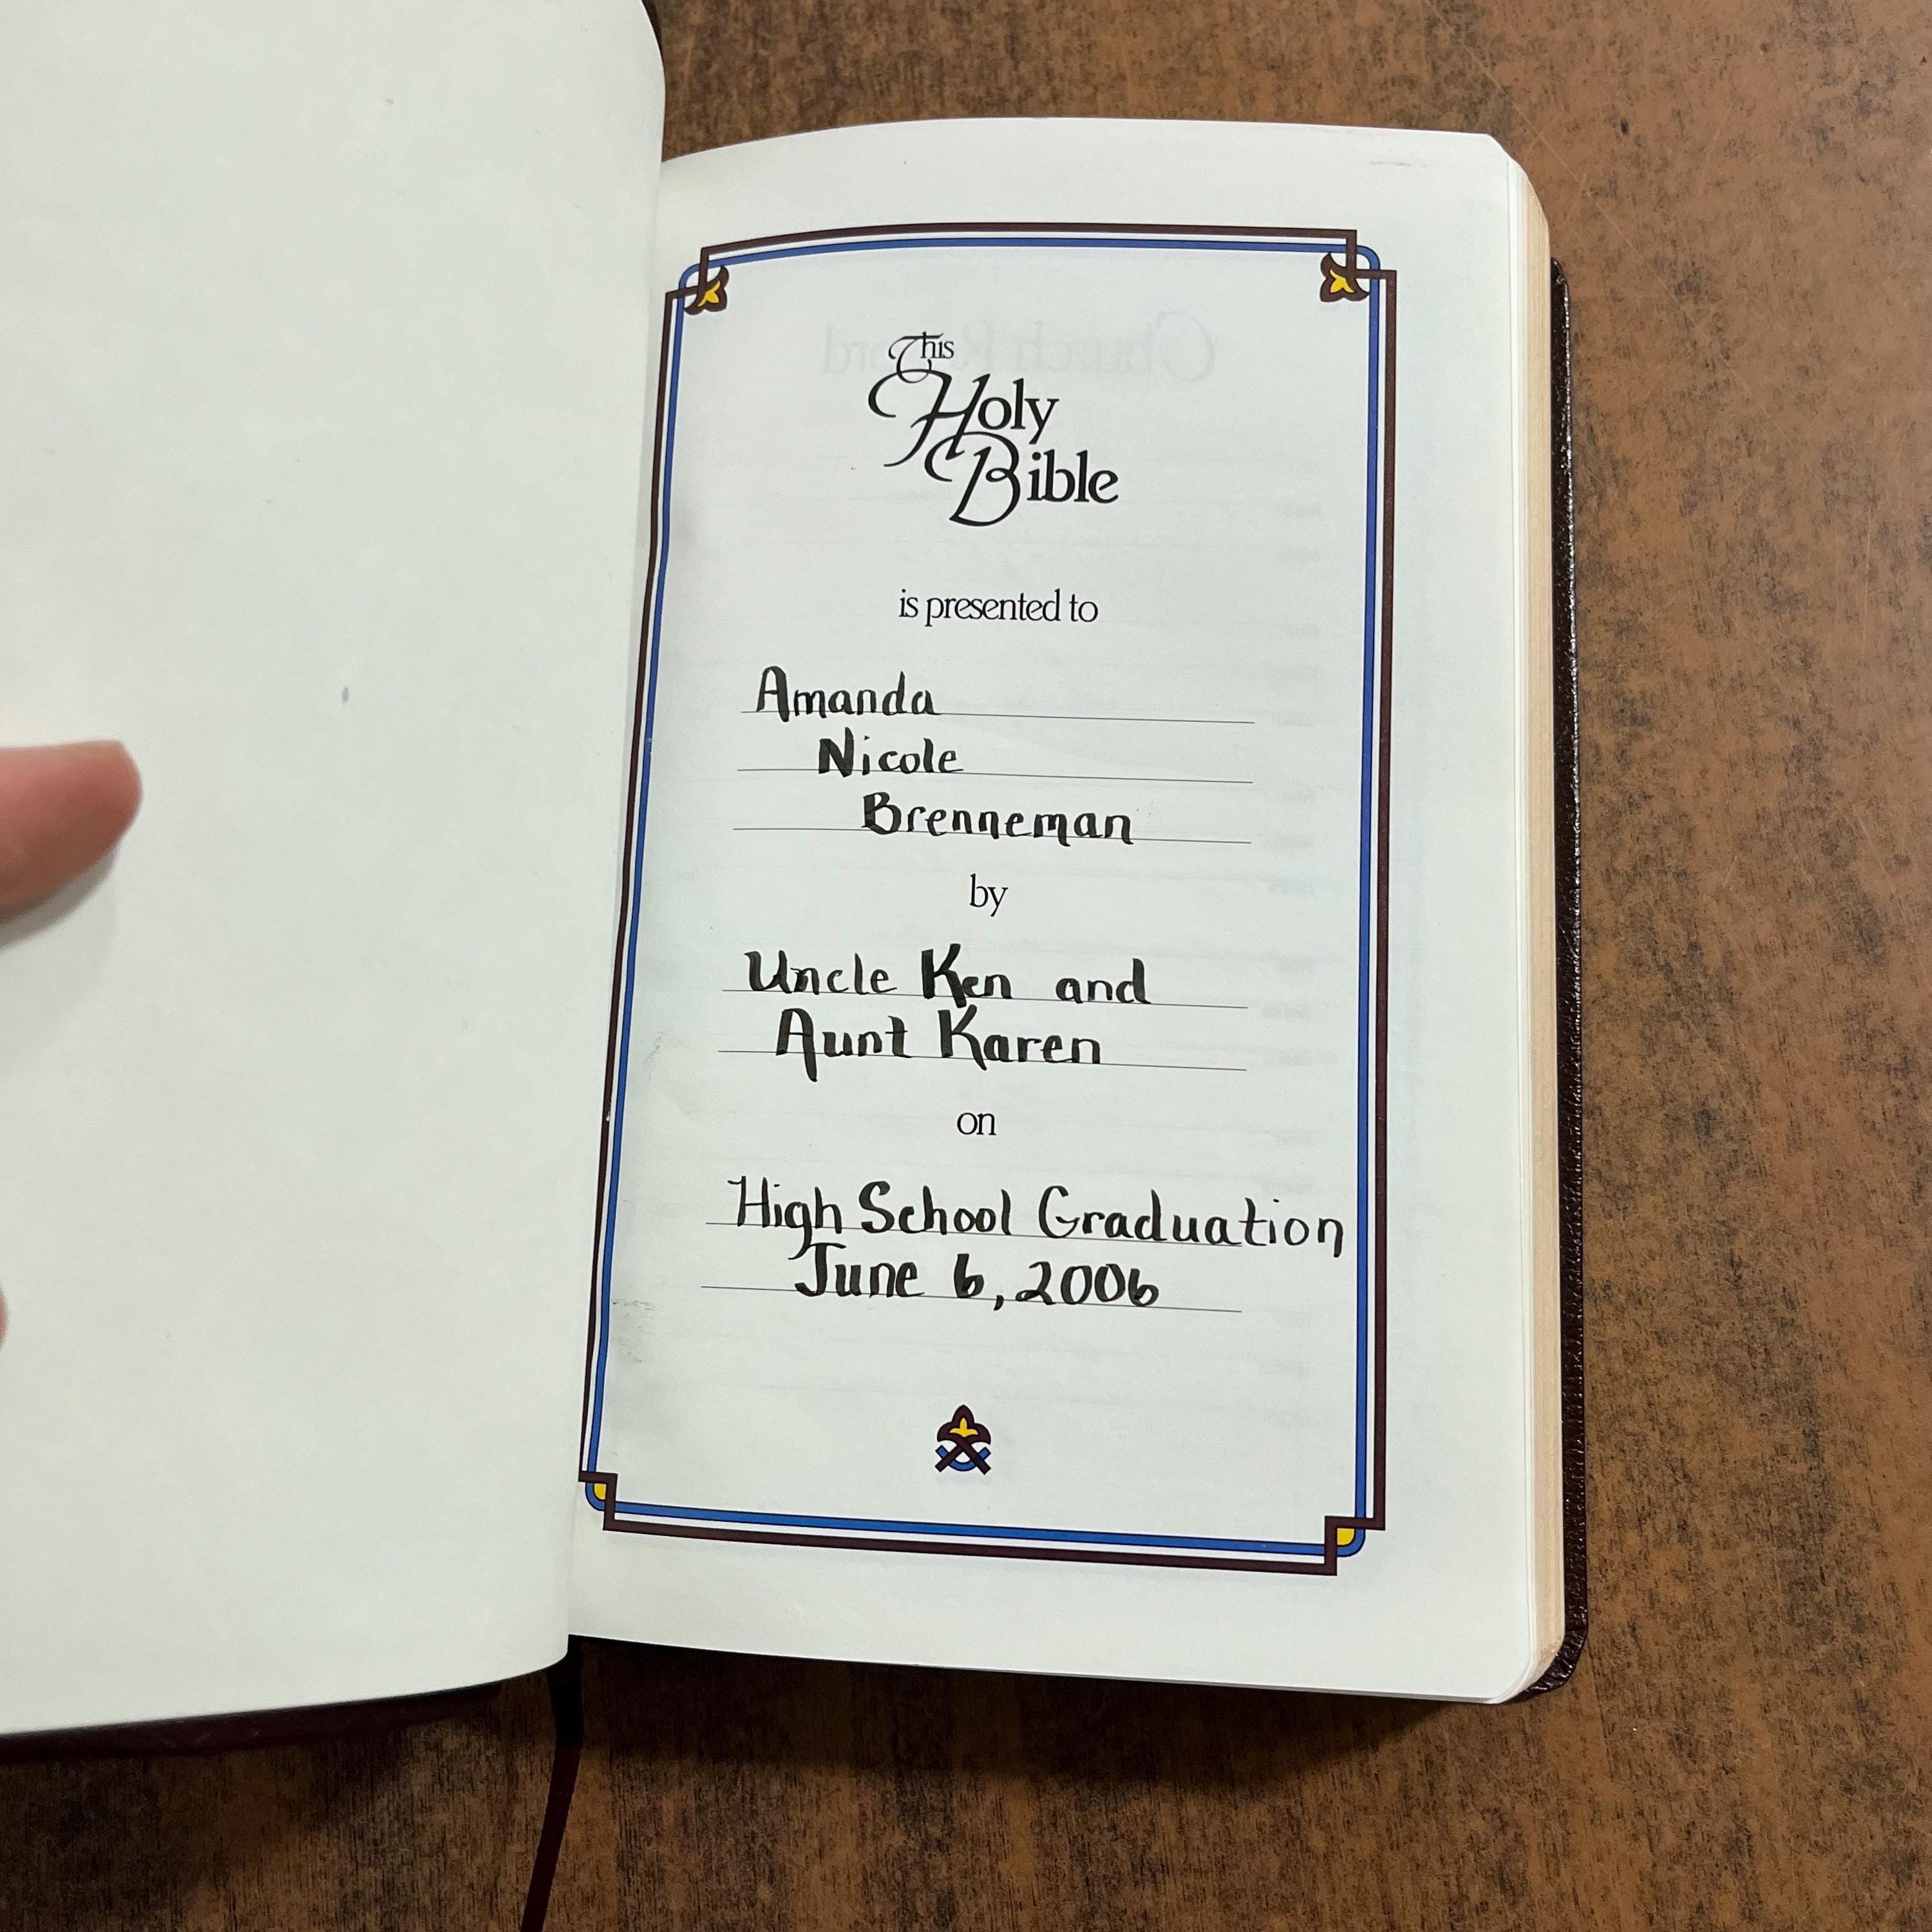 This
Holy
Bible
is presented to
Amanda
Nicole
Brenneman
by
Uncle Ken and
Aunt Karen
on
High School Graduation
June 6, 2006